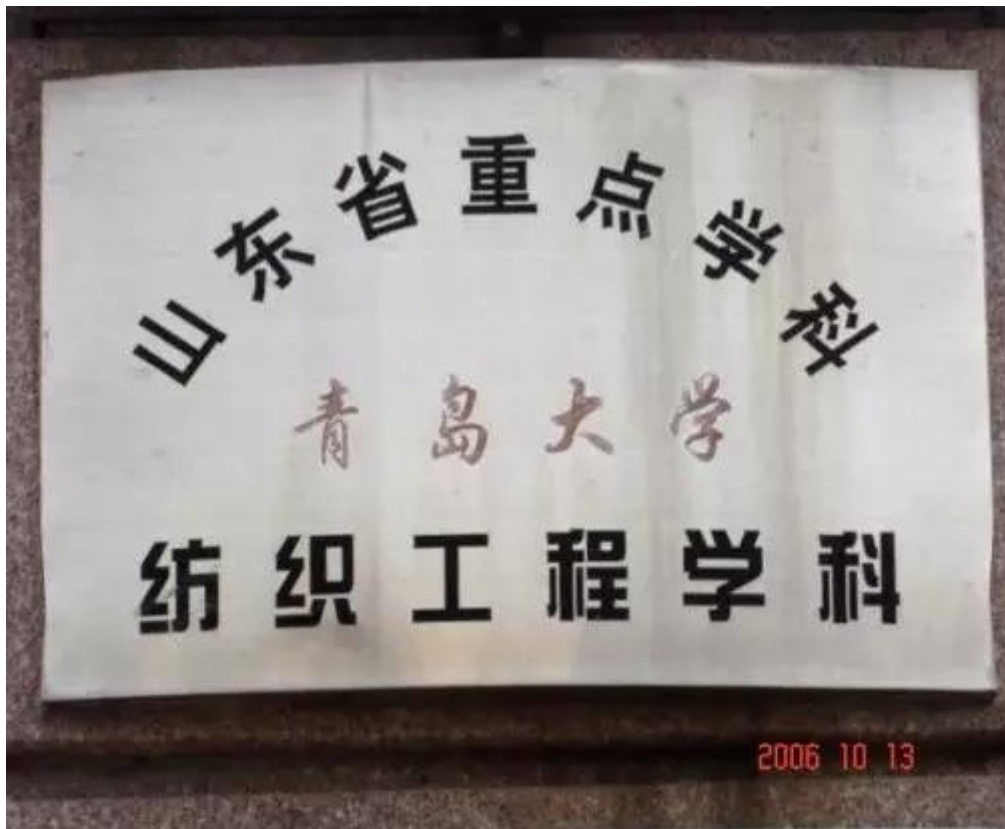 山东省重点学科
青岛大学
纺织工程学科
2006 10 13